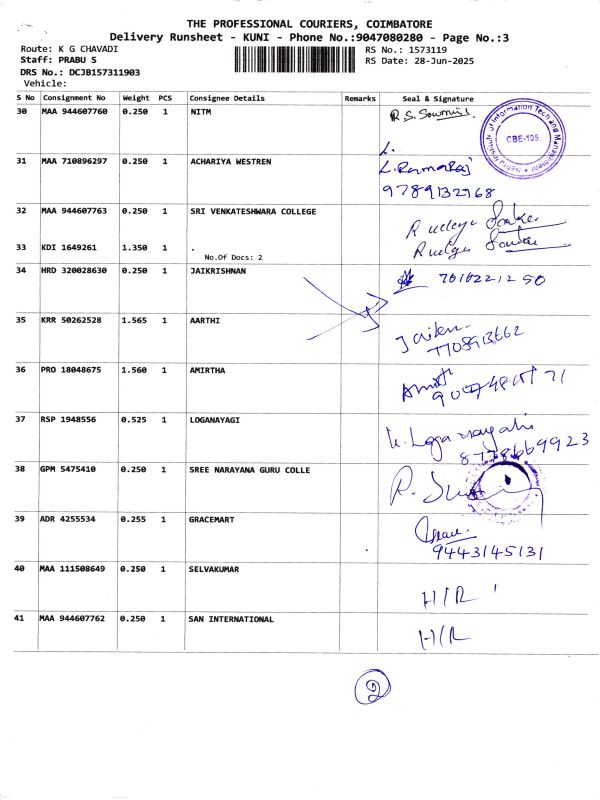 THE PROFESSIONAL COURIERS, COIMBATORE
Delivery Runsheet - KUNI - Phone No.:9047080280 - Page No.:3
Route: K G CHAVADI
RS No.: 1573119
Staff: PRABU S
RS Date: 28-Jun-2025
DRS No.: DCJB157311903
Vehicle:
S No Consignment No Weight PCS Consignee Details Remarks Seal & Signature
30 MAA 944607760 0.250 1 NITM R.S. Sowmi
Nehru Institute of Information Tech and Management
CBE-105
L.
31 MAA 710896297 0.250 1 ACHARIYA WESTREN L. Ramaraj
9789132968
32 MAA 944607763 0.250 1 SRI VENKATESHWARA COLLEGE
33 KDI 1649261 1.350 1 .
No.Of Docs: 2
34 HRD 320028630 0.250 1 JAIKRISHNAN
35 KRR 50262528 1.565 1 AARTHI
36 PRO 18048675 1.560 1 AMIRTHA
37 RSP 1948556 0.525 1 LOGANAYAGI
38 GPM 5475410 0.250 1 SREE NARAYANA GURU COLLE
39 ADR 4255534 0.255 1 GRACEMART
9443145131
40 MAA 111508649 0.250 1 SELVAKUMAR H/R
41 MAA 944607762 0.250 1 SAN INTERNATIONAL H/R
2